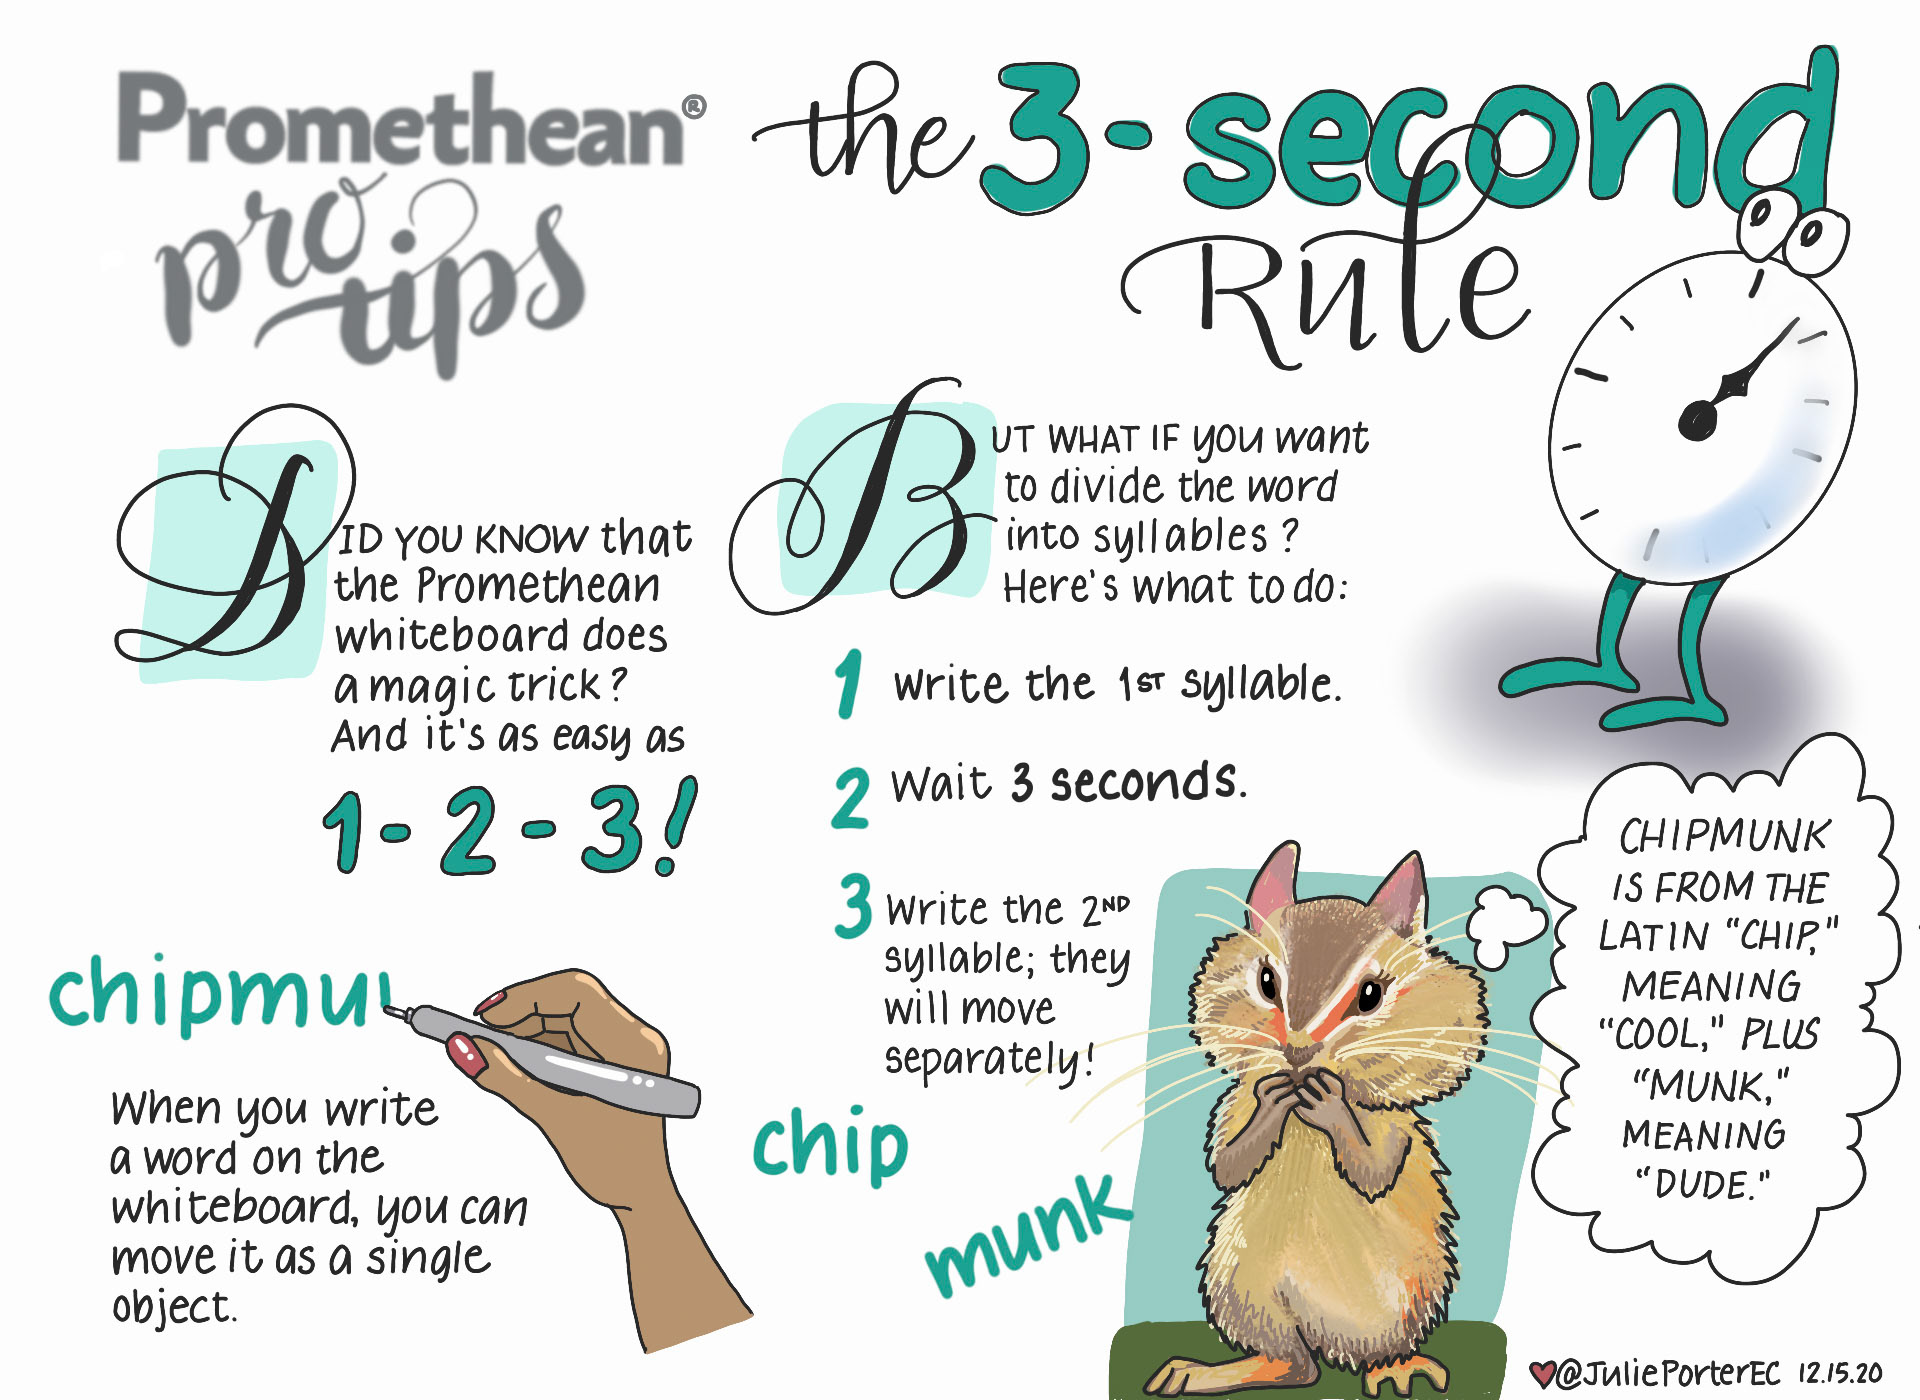 Promethean®
pro tips
the 3-second
Rule
DID YOU KNOW that
the Promethean
whiteboard does
a magic trick?
And it's as easy as
1-2-3!
chipmu
When you write
a word on the
whiteboard, you can
move it as a single
object.
BUT WHAT IF you want
to divide the word
into syllables?
Here's what to do:
1 Write the 1ST syllable.
2 Wait 3 seconds.
3 Write the 2ND
syllable; they
will move
separately!
chip
munk
CHIPMUNK
IS FROM THE
LATIN "CHIP,"
MEANING
"COOL," PLUS
"MUNK,"
MEANING
"DUDE."
@JuliePorterEC 12.15.20